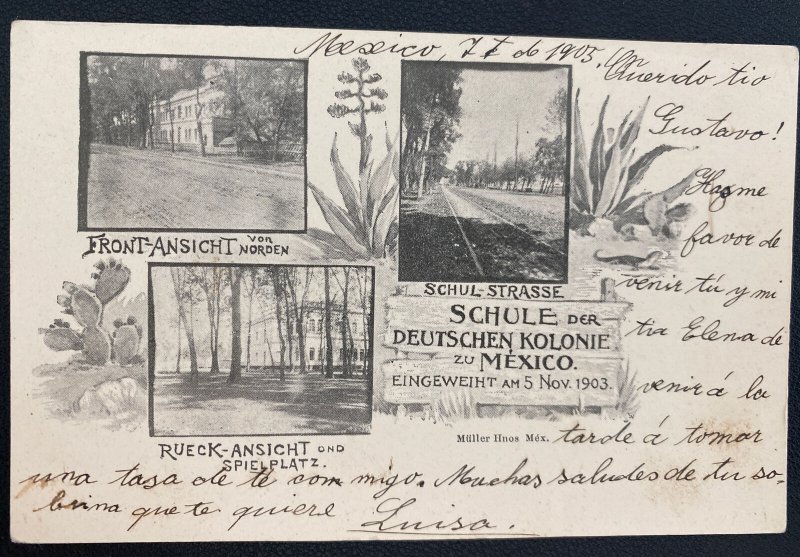 Mexico, 7 I de 1905.
Querido tio
Gustavo!
Hazme
favor de
venir tú y mi
tia Elena de
venir á la
tarde á tomar
una tasa de té com migo. Muchas saludes de tu so-
brina que te quiere Luisa.
FRONT-ANSICHT VON NORDEN
SCHUL-STRASSE
SCHULE DER
DEUTSCHEN KOLONIE
ZU MÉXICO.
EINGEWEIHT AM 5 NOV. 1903.
Müller Hnos Méx.
RUECK-ANSICHT OND
SPIELPLATZ.